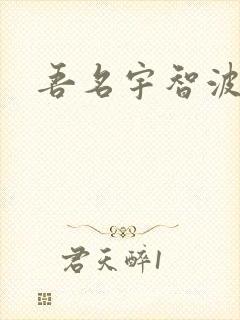 吾名宇智波
君天醉1